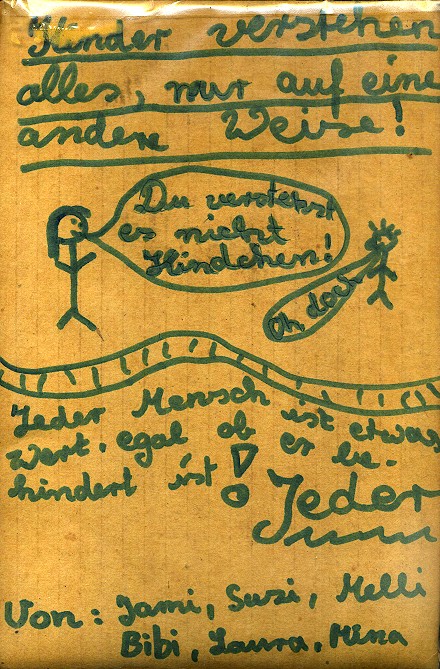 Kinder verstehen
alles, nur auf eine
andere Weise!
Du verstehst
es nicht
Kindchen!
Oh, doch
Jeder Mensch ist etwas
Wert, egal ob er be-
hindert ist!
Jeder
Von: Jami, Susi, Melli
Bibi, Laura, Mina